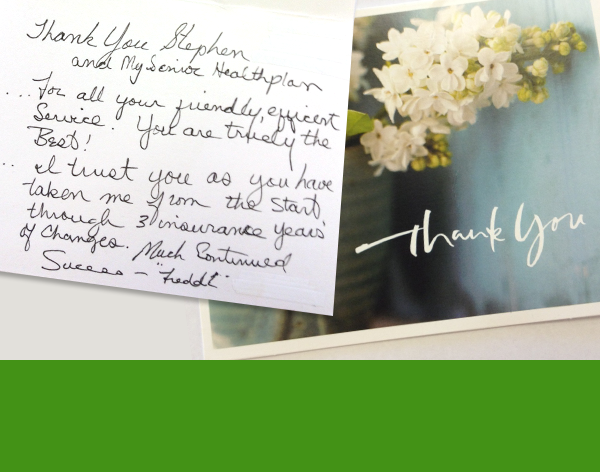 Thank You Stephen
and My Senior Healthplan
... For all your friendly, efficent
Service. You are truely the
Best!
... I trust you as you have
taken me from the start,
through 3 insurance years
of changes. Much Continued
Success —
Thank You